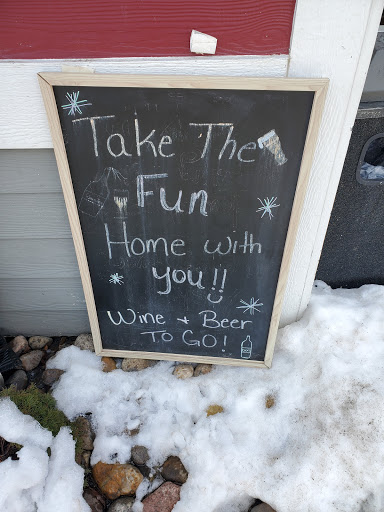 Take The
Fun
Home with
you!!
Wine + Beer
TO GO!